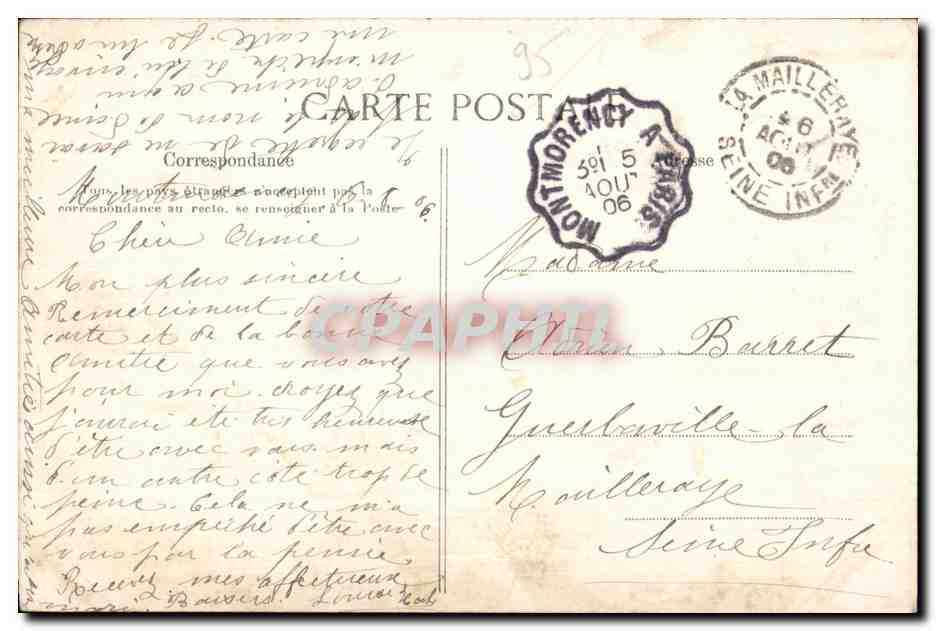 95
CARTE POSTALE
Correspondance
Adresse
Tous les pays étrangers n'acceptent pas la
correspondance au recto, se renseigner à la Poste
MONTMORENCY A PARIS
3E 5
AOUT
06
LA MAILLERAYE
6
AOUT
06
SEINE INFRE
Chère Amie
Mon plus sincère
Remerciment de votre
carte et de la bonne
Amitié que vous avez
pour moi. croyez que
j'aurai été très heureuse
d'être avec vous. mais
d'un autre côté trop de
peine. Cela ne m'a
pas empêché d'être avec
vous par la pensée
Recevez mes affectueux
Baisers. Louise
Je regrette de ne savoir
le nom de
m'empêche de lui envoyer
une carte. Je
Madame
Adrien Barret
Guerbaville-la
Mailleraye
Seine Infre
CPAPHIL